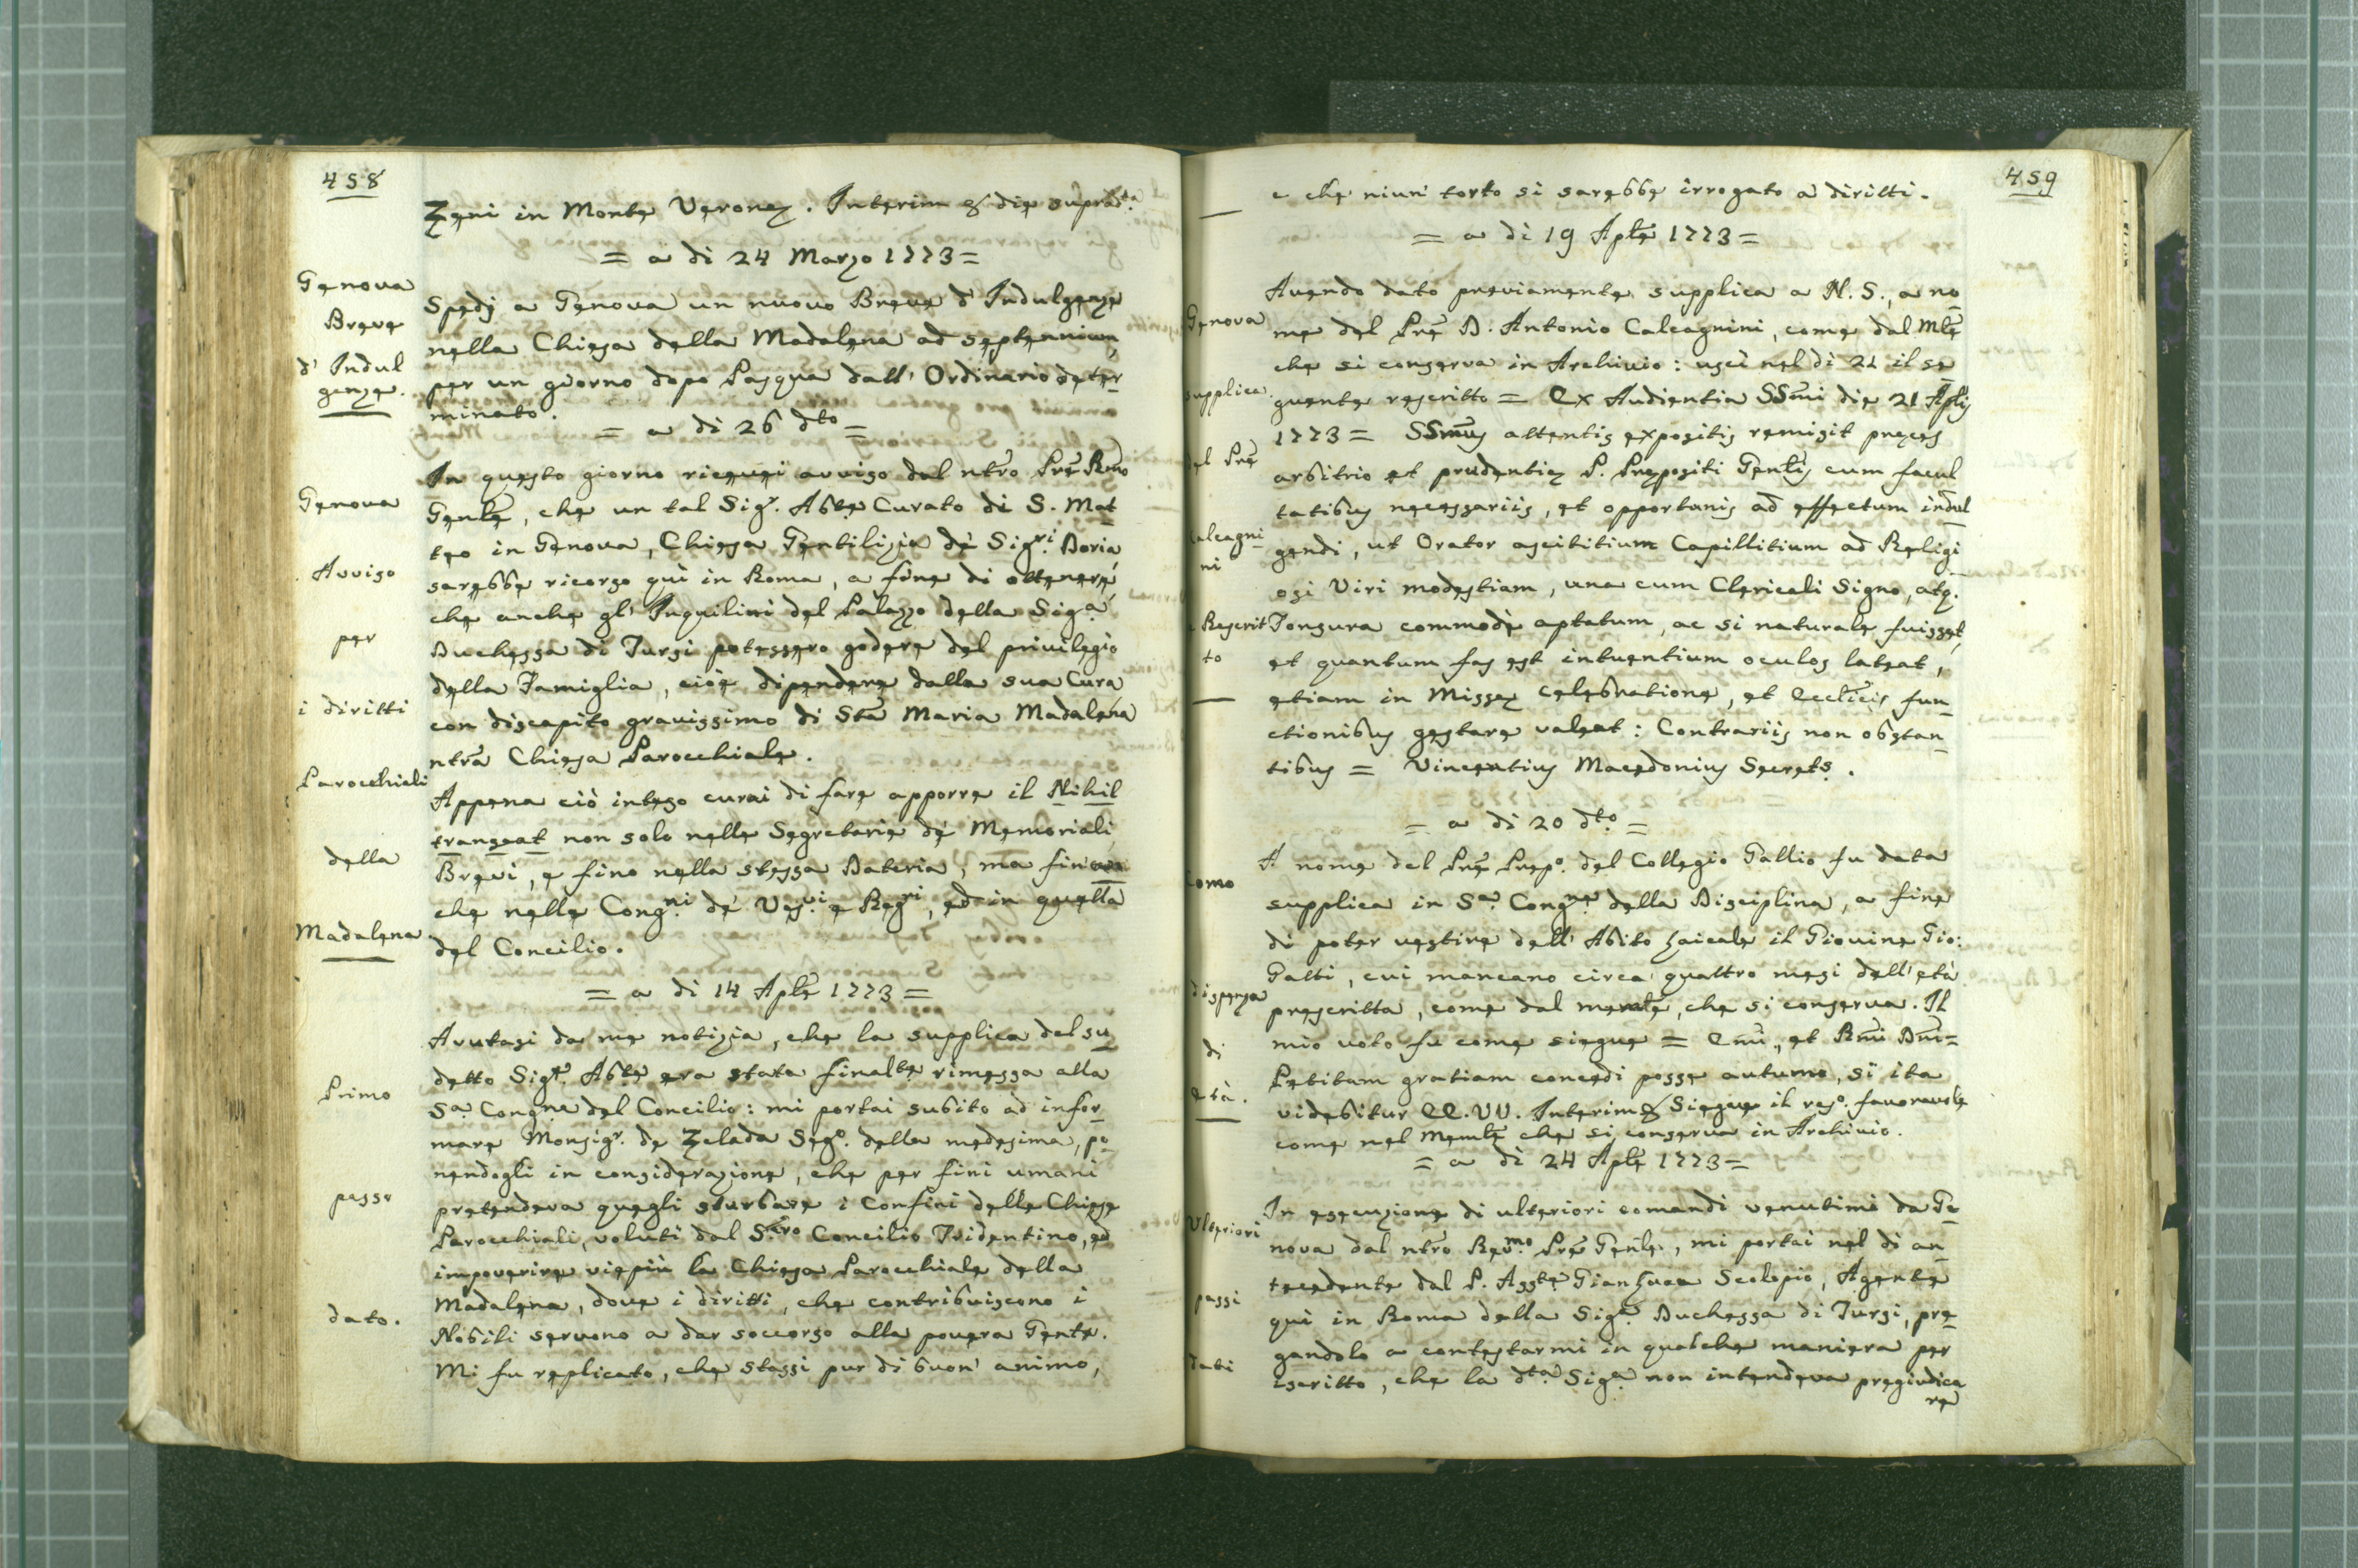 458
Zeni in Monte Veronez. Interim & die suprad.ta
= a di 24 Marzo 1773 =
Genova
Breve
d' Indul
genze.
Spedj a Genova un nuovo Breve d' Indulgenze
nella Chiesa della Madalena ad septennium
per un giorno dopo Pasqua dall' Ordinario deter
minato.
= a di 26 dto =
Genova
Avviso
per
i diritti
Parocchiali
della
Madalena
In questo giorno ricevei avviso dal ntro Pre Rmo
Genle, che un tal Sigr. Abte Curato di S. Mat
teo in Genova, Chiesa Gentilizia de' Sigri Doria
sarebbe ricorso quì in Roma, a fine di ottenere,
che anche gl' Inquilini del Palazzo della Siga
Duchessa di Tursi potessero godere del privilegio
della Famiglia, cioè dipendere dalla sua Cura
con discapito gravissimo di Sta Maria Madalena
ntra Chiesa Parocchiale.
Appena ciò inteso curai di fare apporre il Nihil
transeat non solo nelle Segretarie de' Memoriali
Brevi, e fino nella stessa Dateria, ma fin an
che nelle Cong.ni de' Ves.vi e Reg.ri, ed in quella
del Concilio.
= a di 14 Aple 1773 =
Primo
passo
dato.
Avutasi da me notizia, che la supplica del su
detto Sigr. Abte era stata finalte rimessa alla
Sa. Congne del Concilio: mi portai subito ad infor
mare Monsigr. de Zelada Sego. della medesima, po
nendogli in considerazione, che per fini umani
pretendeva quegli sturbare i Confini delle Chiese
Parocchiali, voluti dal Sacro Concilio Tridentino, ed
impoverire viepiù la Chiesa Parocchiale della
Madalena, dove i diritti, che contribuiscono i
Nobili servono a dar soccorso alla povera Gente.
Mi fu replicato, che stassi pur di buon' animo,
459
e che niun' torto si sarebbe irrogato a' diritti.
= a di 19 Aple 1773 =
Genova
supplica
del Pre
Calcagni
ni
e Rescrit
to
Avendo dato previamente supplica a N. S., a no
me del Pre D. Antonio Calcagnini, come dal Mle
che si conserva in Archivio: uscì nel di 21 il se
guente rescritto = Ex Audientia SSmi die 21 Aplis
1773 = SSmus attentis expositis remisit preces
arbitrio et prudentiæ P. Præpositi Genlis cum facul
tatibus necessariis, et opportunis ad effectum indul
gendi, ut Orator ascititium Capillitium ad Religi
osi Viri modestiam, una cum Clericali Signo, atq.
Tonsura commodè aptatum, ac si naturale fuisset,
et quantum fas est intuentium oculos lateat,
etiam in Missæ celebratione, et Ecclicis fun
ctionibus gestare valeat: Contrariis non obstan
tibus = Vincentius Macedonius Secrets.
= a di 20 dto =
Como
dispensa
di
età.
A nome del Pre Prepo. del Collegio Gallio fu data
supplica in Sa. Congne della Disciplina, a fine
di poter vestire dell' Abito Laicale il Giovine Gio:
Galti, cui mancano circa quattro mesi dell' età
prescritta, come dal memle, che si conserva. Il
mio voto fu come siegue = Emi, et Rmi Dni =
Petitam gratiam concedi posse autumo, si ita
videbitur EE. VV. Interim & Siegue il reso. favorevole
come nel Memle che si conserva in Archivio.
= a di 24 Aple 1773 =
Ulteriori
passi
dati
In esecuzione di ulteriori comandi venutimi da Ge
nova dal ntro Revmo Pre Genle, mi portai nel di an
tecedente dal P. Asste Gian Luca Scolopio, Agente
quì in Roma della Siga. Duchessa di Tursi, pre
gandolo a contestarmi in qualche maniera per
iscritto, che la dta Siga non intendeva pregiudica
re